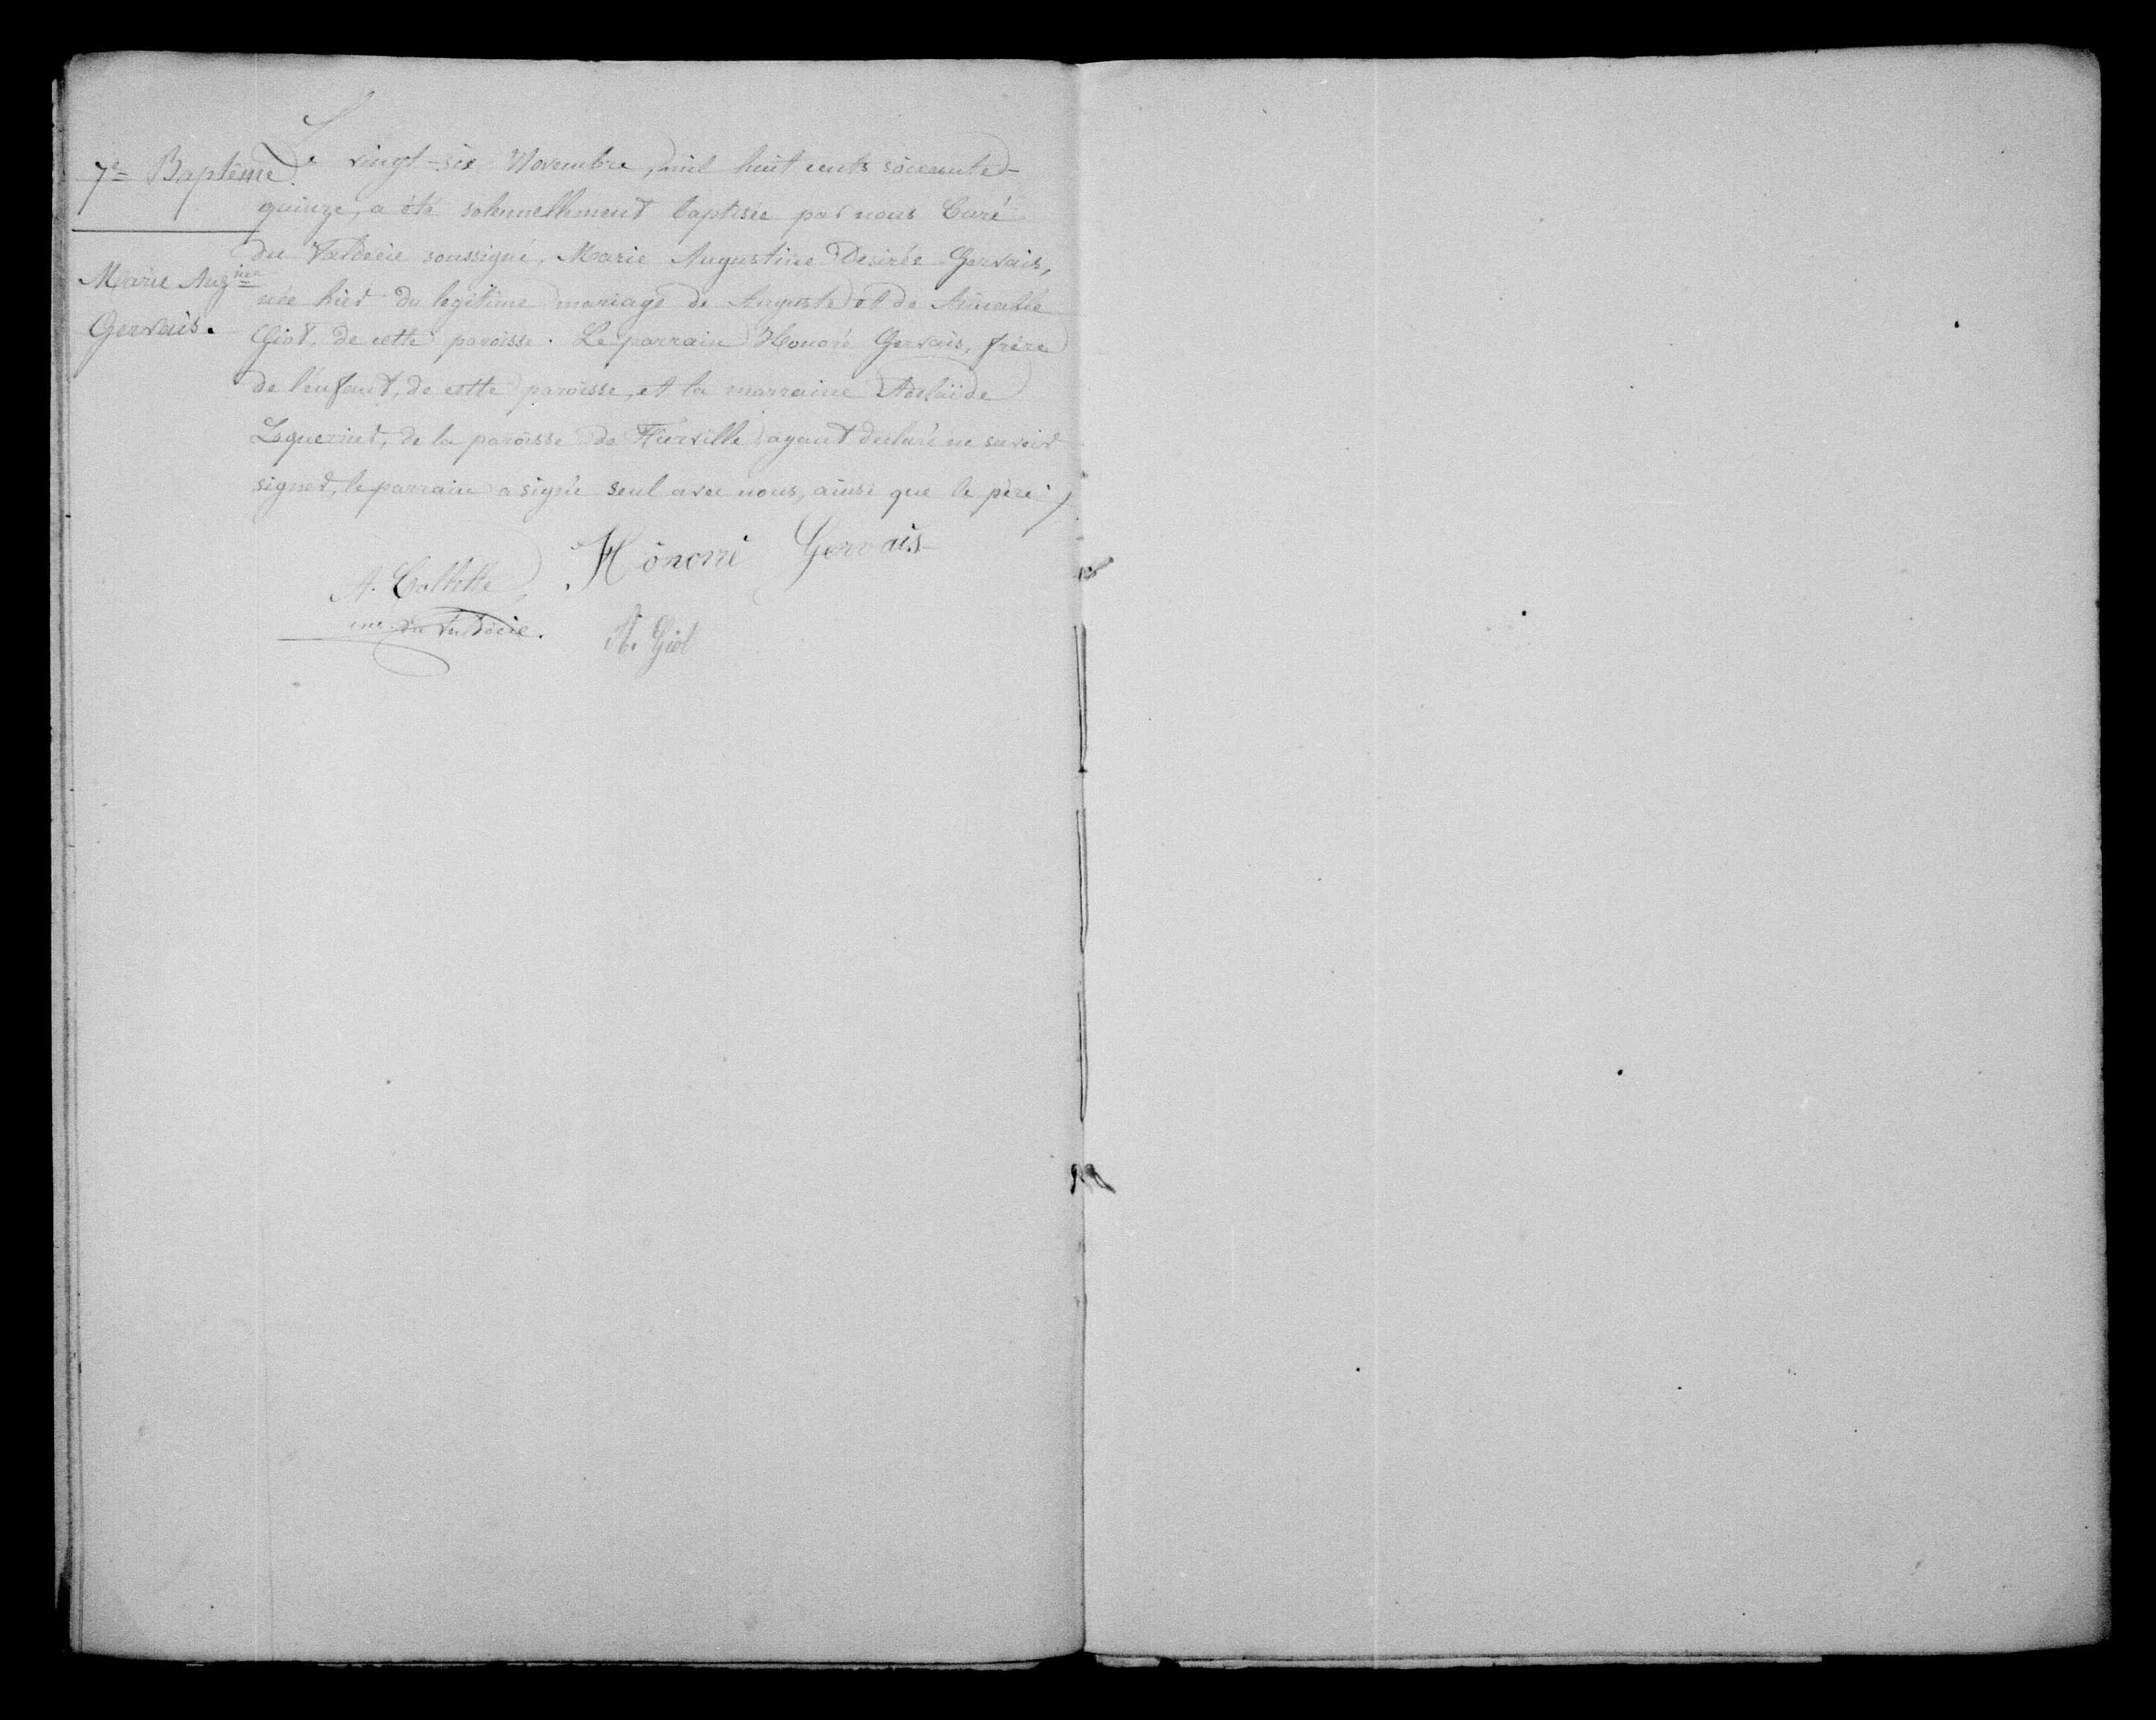 7e Baptême
Marie Augine
Gervais.
Le vingt-six Novembre, mil huit cents soixante-
quinze, a été solennellement baptisée par nous Curé
du Valdécie soussigné, Marie Augustine Desirée Gervais,
née hier du legitime mariage de Auguste et de Aimable
Giot, de cette paroisse. Le parrain Honoré Gervais, frère
de l'enfant, de cette paroisse, et la marraine Adelaïde
Leguerrier, de la paroisse de Fierville ayant declaré ne savoir
signer, le parrain a signé seul avec nous, ainsi que le père
Hônoré Gervais
A. Collette
curé du Valdécie.
A. Giot